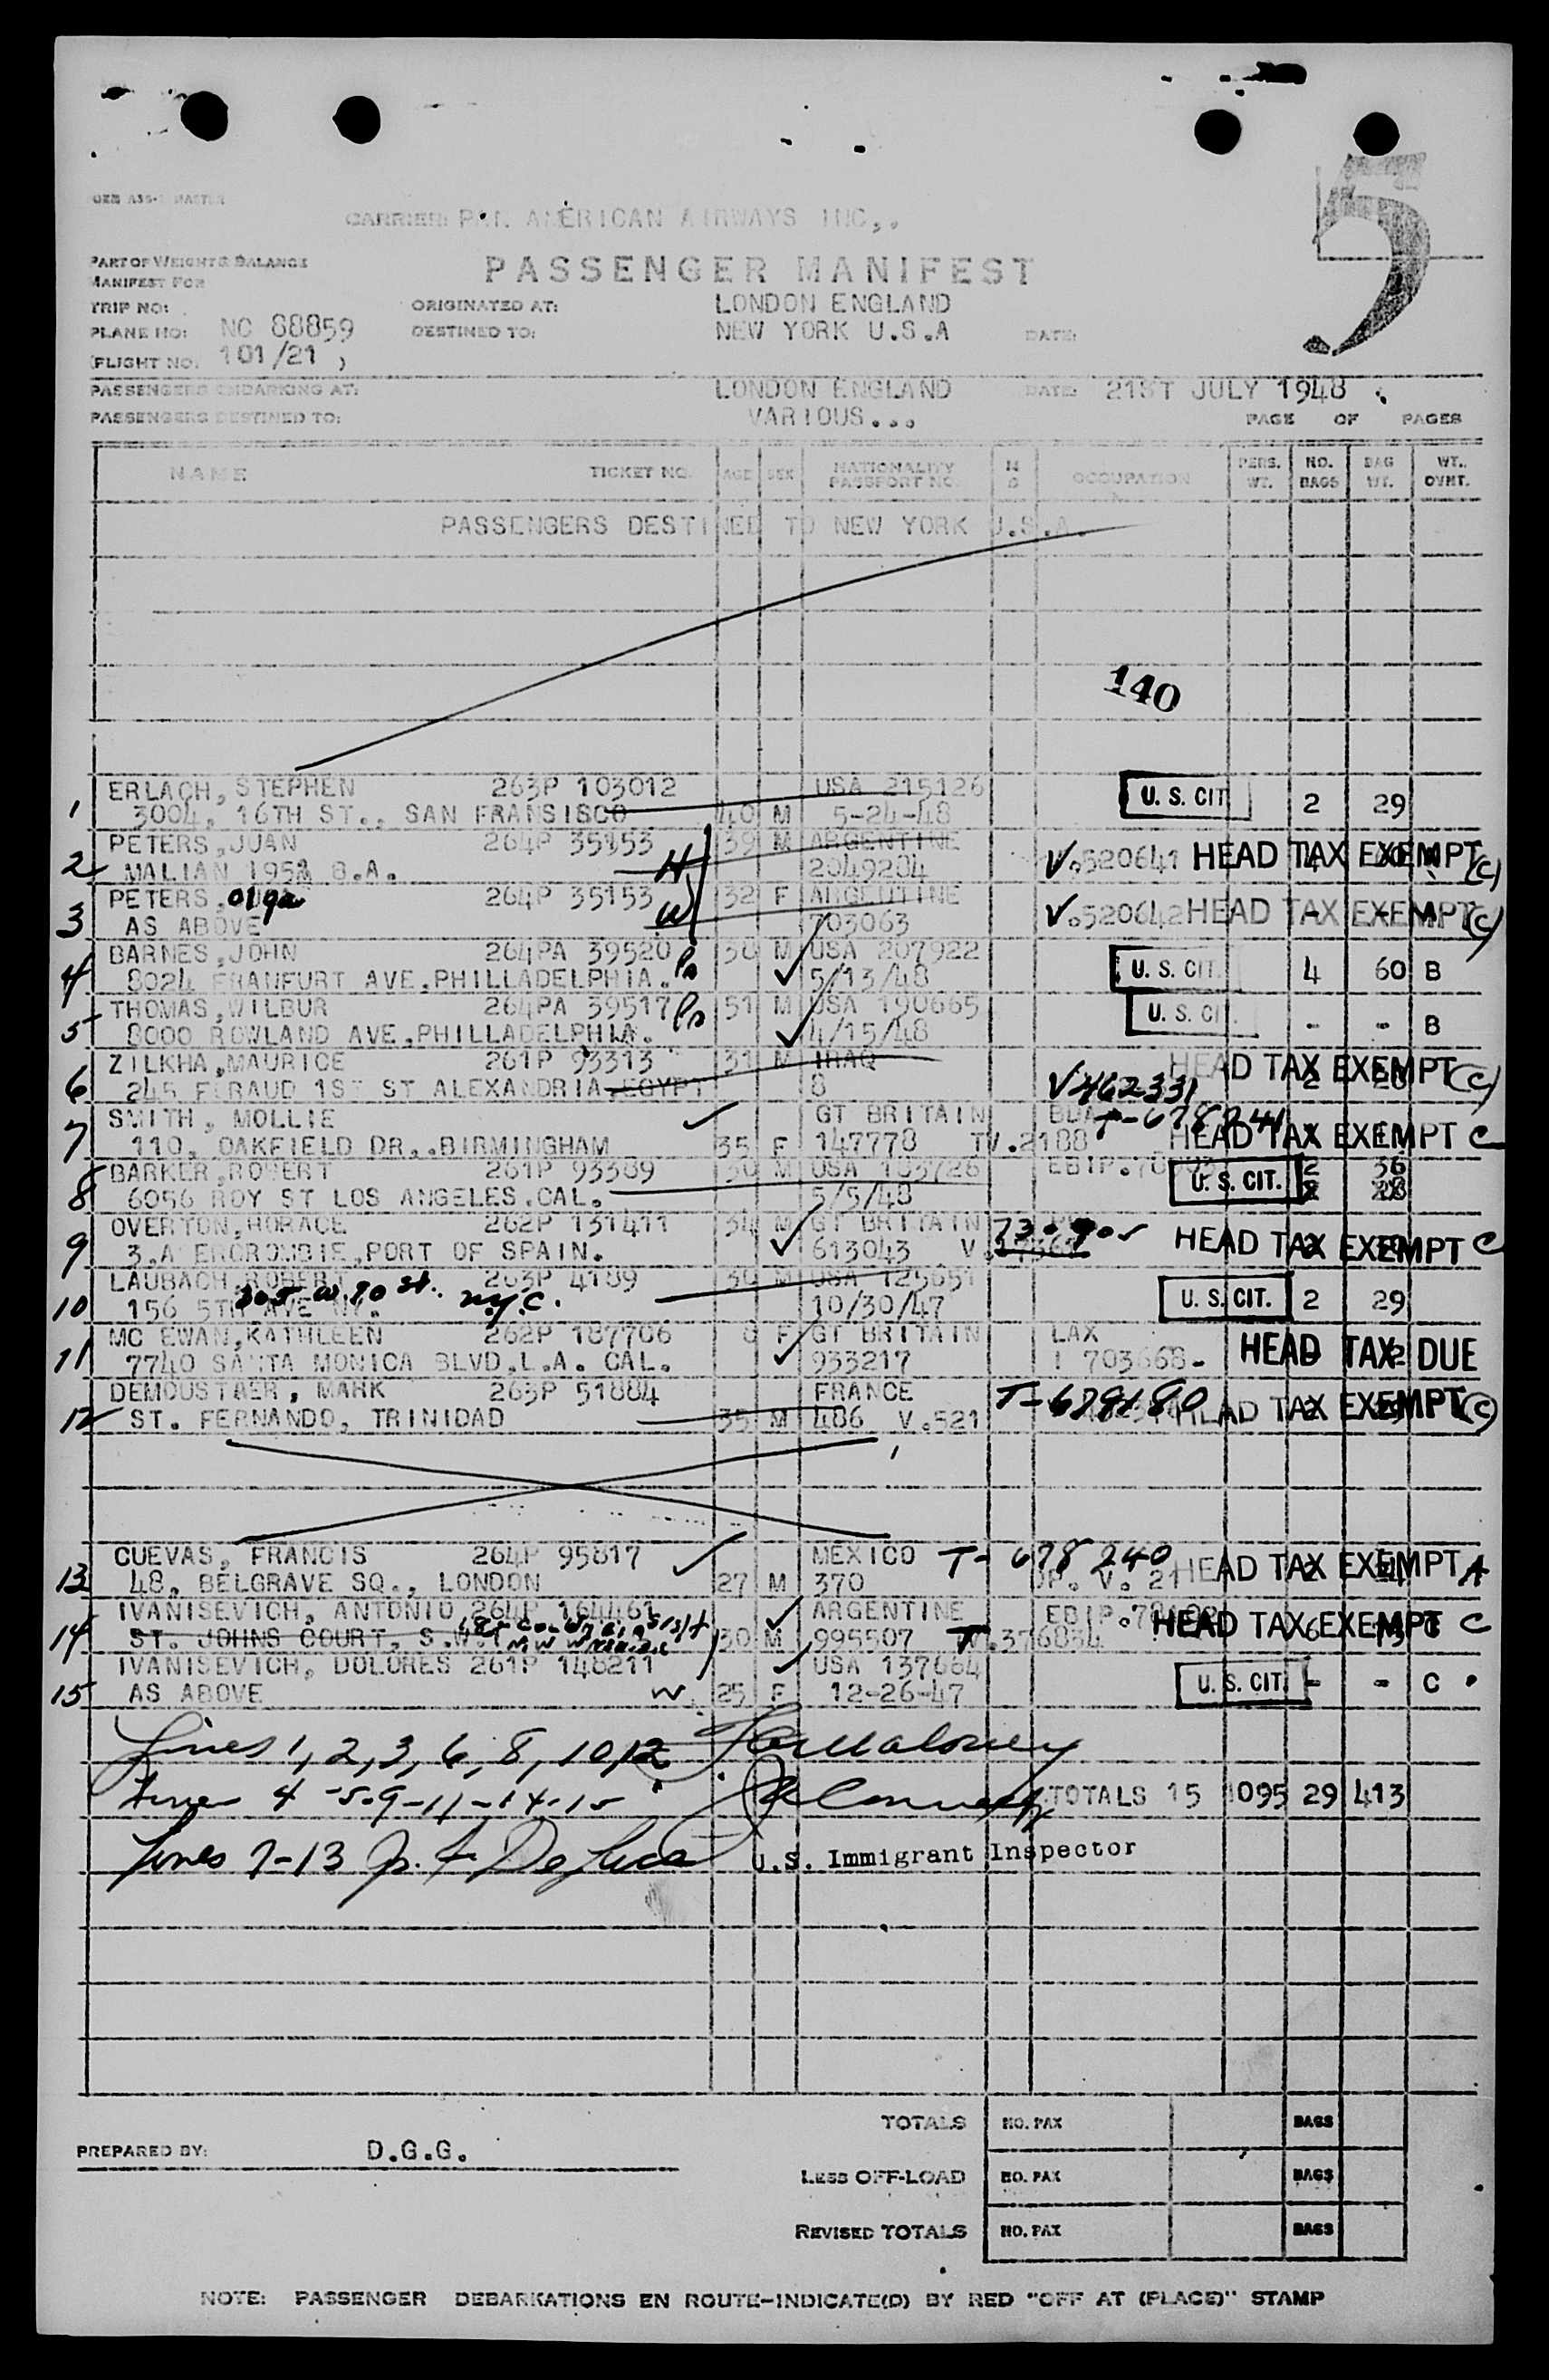 CARRIER: PAN AMERICAN AIRWAYS INC,.
5
PART OF WEIGHT & BALANCE
MANIFEST FOR
PASSENGER MANIFEST
TRIP NO:
ORIGINATED AT: LONDON ENGLAND
PLANE NO: NC 88859
DESTINED TO: NEW YORK U.S.A DATE:
(FLIGHT NO. 101/21 )
PASSENGERS EMBARKING AT: LONDON ENGLAND DATE: 21ST JULY 1948
PASSENGERS DESTINED TO: VARIOUS... PAGE OF PAGES
NAME TICKET NO. AGE SEX NATIONALITY PASSPORT NO. OCCUPATION PERS. WT. NO. BAGS BAG WT. WT. OVHT.
PASSENGERS DESTINED TO NEW YORK U.S.A.
140
ERLACH, STEPHEN 263P 103012 USA 215126
1 3004, 16TH ST., SAN FRANSISCO 40 M 5-24-48 U. S. CIT. 2 29
PETERS, JUAN 264P 35153 39 M ARGENTINE
2 MALIAN B.A. H 2049204 V.520641 HEAD TAX EXEMPT (C)
PETERS, Olga 264P 35153 32 F ARGENTINE
3 AS ABOVE W 703063 V.520642 HEAD TAX EXEMPT (C)
BARNES, JOHN 264PA 39520 M USA 207922
4 8024 FRANFURT AVE.PHILLADELPHIA. 5/13/48 U. S. CIT. 4 60 B
THOMAS, WILBUR 264PA 39517 51 M USA 190665
5 8000 ROWLAND AVE.PHILLADELPHIA. 4/15/48 U. S. CIT. - - B
ZILKHA, MAURICE 261P 93313 31 M IRAQ
6 245 FERAUD 1ST ST ALEXANDRIA, EGYPT 8 V462331 HEAD TAX EXEMPT (C)
SMITH, MOLLIE GT BRITAIN
7 110, OAKFIELD DR,.BIRMINGHAM 35 F 147778 TV.2188 HEAD TAX EXEMPT C
BARKER, ROBERT 261P 93389 M USA 103726
8 6056 ROY ST LOS ANGELES.CAL. 5/5/48 U. S. CIT. 2 36
OVERTON, HORACE 262P 131411 34 M GT BRITAIN
9 3.A ERCROMBIE, PORT OF SPAIN. 613043 V. HEAD TAX EXEMPT C
LAUBACH, ROBERT 263P 4189 M USA 125651
305 W. 70 St. N.Y.C.
10 156 5TH AVE NY. 10/30/47 U. S. CIT. 2 29
MC EWAN, KATHLEEN 262P 187706 F GT BRITAIN LAX
11 7740 SANTA MONICA BLVD.L.A. CAL. 933217 I 703668- HEAD TAX DUE
DEMOUSTAER, MARK 263P 51884 FRANCE T-679180
12 ST. FERNANDO, TRINIDAD 35 M 486 V.521 HEAD TAX EXEMPT (C)
CUEVAS, FRANCIS 264P 95817 MEXICO T-678240
13 48, BELGRAVE SQ., LONDON 27 M 370 HEAD TAX EXEMPT A
IVANISEVICH, ANTONIO 264P 164461 ARGENTINE
14 ST. JOHNS COURT, S.W. 30 M 995507 HEAD TAX EXEMPT C
IVANISEVICH, DOLORES 261P 148211 USA 137664
15 AS ABOVE W. 25 F 12-26-47 U. S. CIT. - - C
Lines 1, 2, 3, 6, 8, 10, 12
Lines 4-5-9-11-14-15 TOTALS 15 1095 29 413
Lines 7-13
U.S. Immigrant Inspector
TOTALS NO. PAX BAGS
PREPARED BY: D.G.G.
LESS OFF-LOAD NO. PAX BAGS
REVISED TOTALS NO. PAX BAGS
NOTE: PASSENGER DEBARKATIONS EN ROUTE-INDICATE(D) BY RED "OFF AT (PLACE)" STAMP